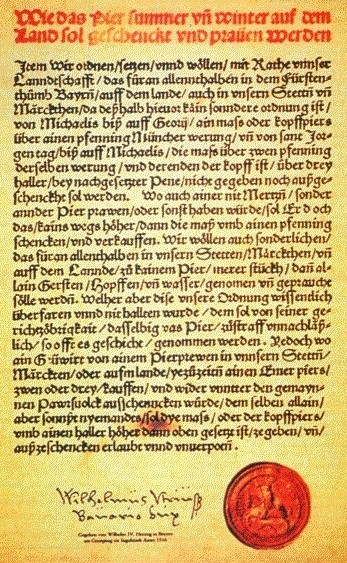 Wie das Pier summer vñ winter auf dem
Land sol geschenckt vnd prauen werden
Item Wir ordnen/setzen/vnnd wöllen/mit Rathe vnnser
Lanndtschafft/das füran allennthalben in dem Fürsten-
thůmb Bayrn/auff dem lande/auch in vnsern Stettñ vñ
Märckthen/da deßhalb hieuor kain sonndere ordnung ist/
von Michaelis biß auff Georij/ain mass oder kopffpiers
über ainen pfenning Müncher werung/vñ von sant Jor-
gen tag/biß auff Michaelis/die mass über zwen pfenning
derselben werung/vnd derenden der kopff ist/über drey
haller/bey nachgesetzter Pene/nicht gegeben noch außge-
schenckht sol werden. Wo auch ainer nit Mertzñ/sonder
annder Pier prawen/oder sonst haben würde/sol Er doch
das/kains wegs höher/dann die maß vmb ainen pfenning
schencken/vnd verkauffen. Wir wöllen auch sonderlichen/
das füran allenthalben in vnsern Stetten/Märckthen/vñ
auff dem Lannde/zů kainem Pier/merer stückh/dañ al-
lain Gersten/Hopffen/vñ wasser/genomen vñ geprauche
sölle werdñ. Welher aber dise vnsere Ordnung wissendlich
überfaren vnnd nit hallten wurde/dem sol von seiner ge-
richtzöbrigkait/dasselbig vas Pier/zůstraff vnnachläß-
lich/so offt es geschicht/genommen werden. Jedoch wo
ain Gůwirt von ainem Pierprewen in vnnsern Stettñ/
Märckten/oder aufm lande/yezůzeitñ ainen Emer piers/
zwen oder drey/kauffen/vnd wider vnntter den gemayn-
nen Pawrsuolck ausschencken würde/dem selben allain/
aber sonnst nyemandes/sol dye mass/oder der kopffpiers/
vmb ainen haller höher dann oben gesetzt ist/zegeben/vñ/
außzeschencken erlaubt vnnd vnuerpotñ.
Wilhelmus
Bavarie Dux
Gegeben von Wilhelm IV. Herzog in Bayern
am Georgitag zu Ingolstadt Anno 1516